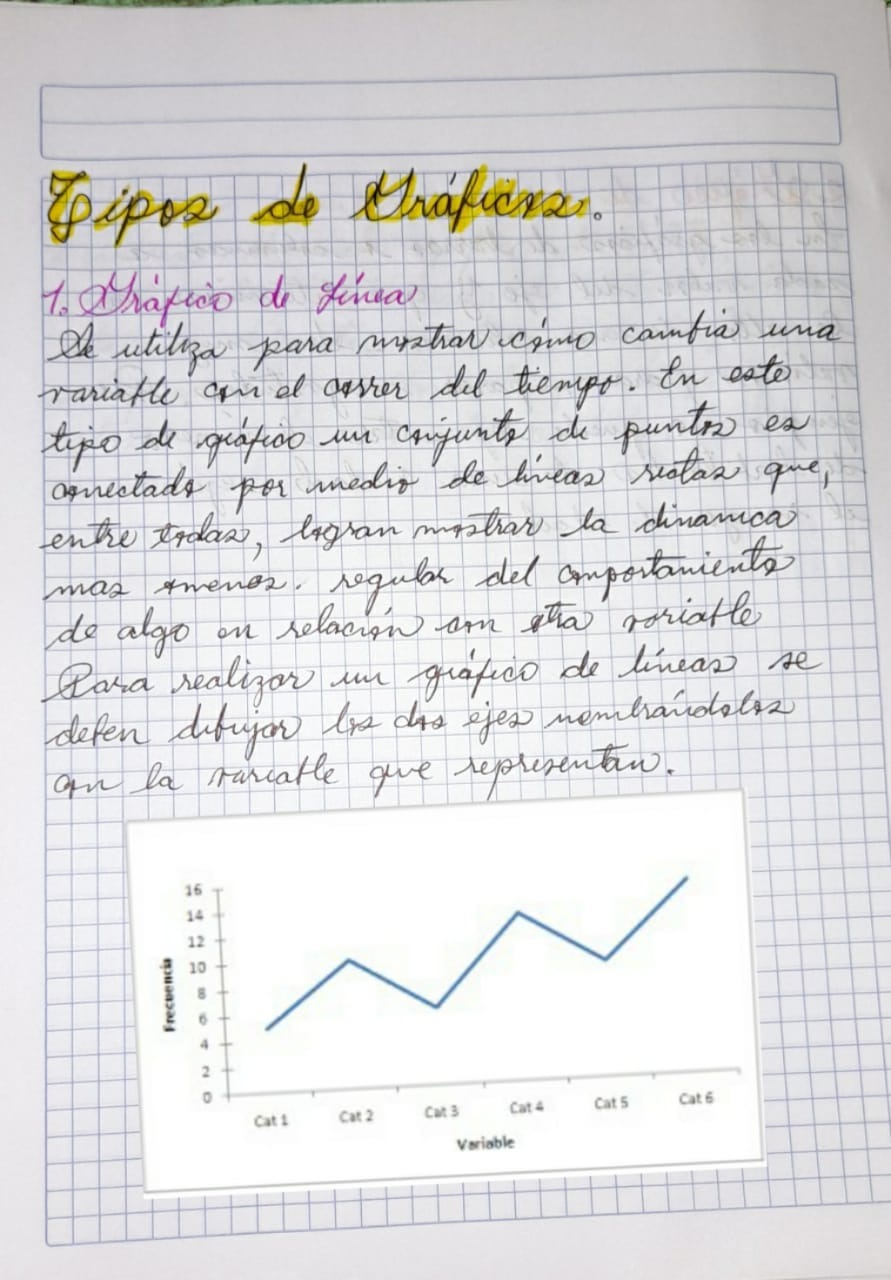 Tipos de Gráficos.
1. Gráfico de Línea
Se utiliza para mostrar cómo cambia una
variable con el correr del tiempo. En este
tipo de gráfico un conjunto de puntos es
conectado por medio de líneas rectas que,
entre todas, logran mostrar la dinamica
mas omenos. regular del comportamiento
de algo en relación con otra variable
Para realizar un gráfico de líneas se
deben dibujar los dos ejes nombrándolos
con la variable que representan.
16
14
12
10
8
6
4
2
0
Frecuencia
Cat 1 Cat 2 Cat 3 Cat 4 Cat 5 Cat 6
Variable